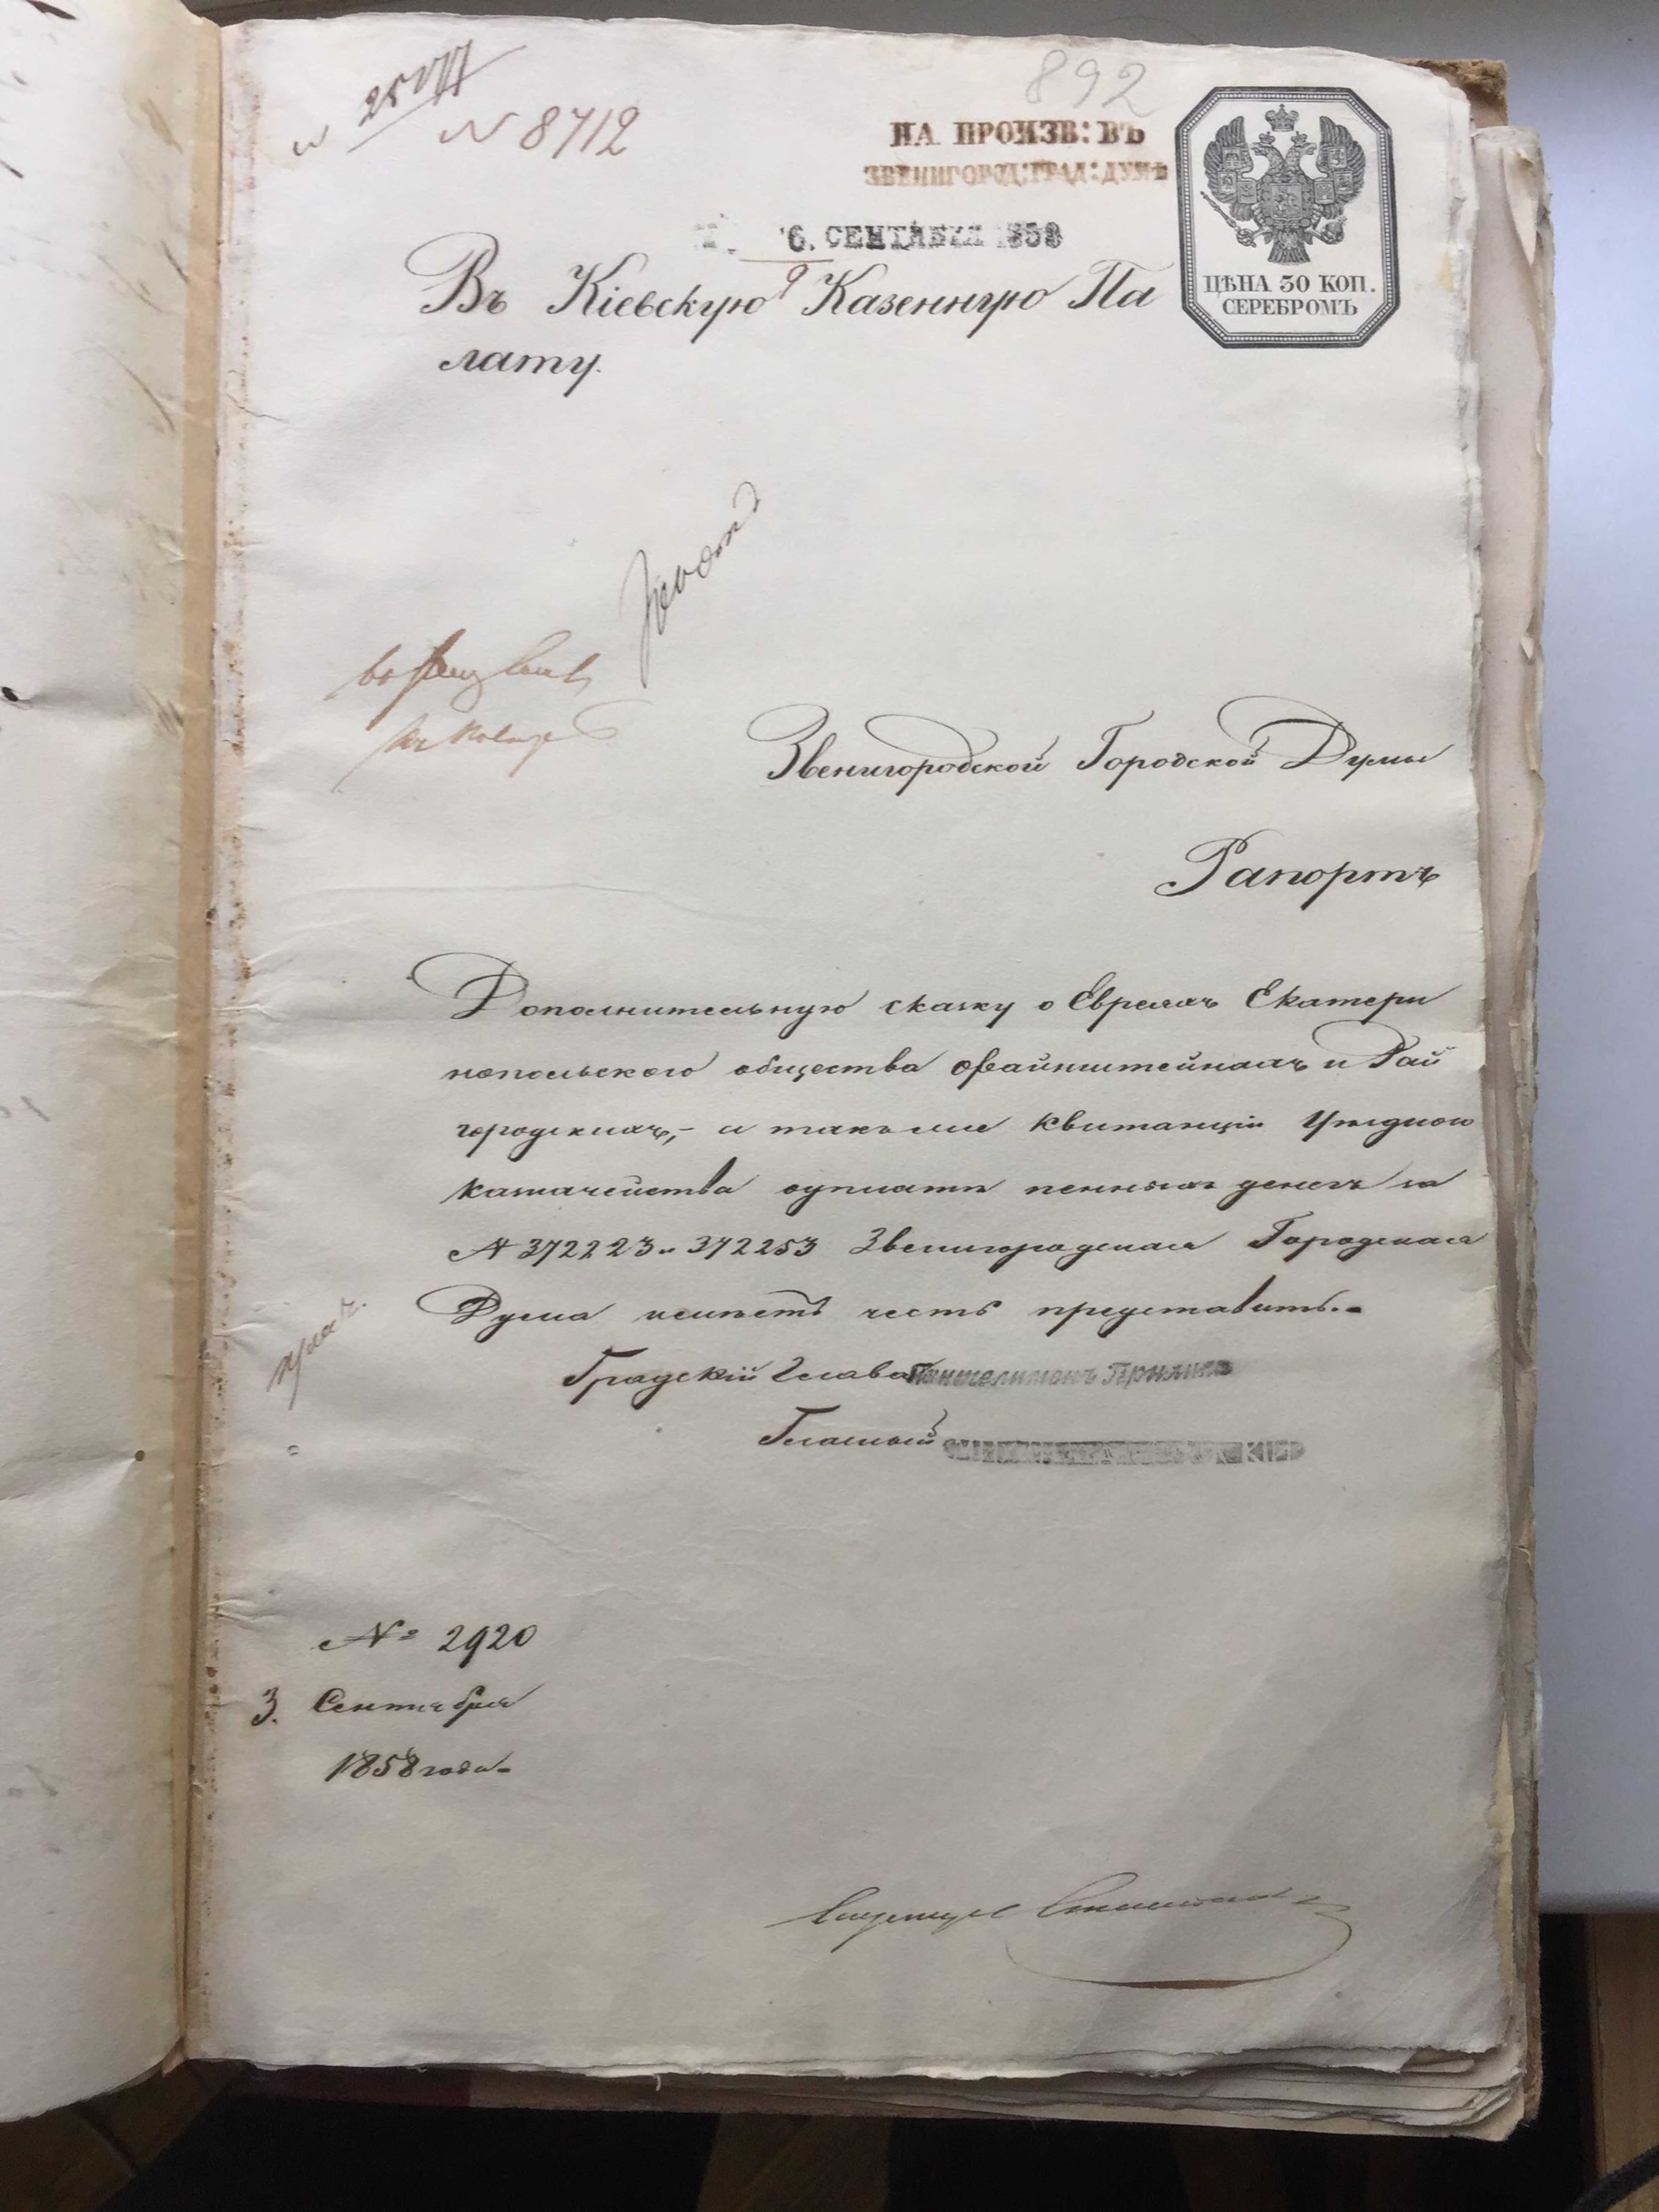 25177
N 8712
892
НА ПРОИЗВ: ВЪ
ЗВЕНИГОРОД: ГРАД: ДУМѢ
6. СЕНТЯБРЯ 1858
9
ЦѢНА 30 КОП.
СЕРЕБРОМЪ
Въ Кіевскую Казенную Па
лату.
Звенигородской Городской Думы
Рапортъ
Дополнительную скаску о Евреяхъ Екатери
нопольского общества Файнштейнахъ и Рай
городскихъ,- а также квитанціи Уѣздного
казначейства оуплатѣ пенныхъ денегъ за
№ 372223 и 372253 Звенигородская Городская
Дума имѣетъ честь представить.-
Градскій Глава Пантелимонъ
Гласный
№ 2920
3. Сентября
1858 года.